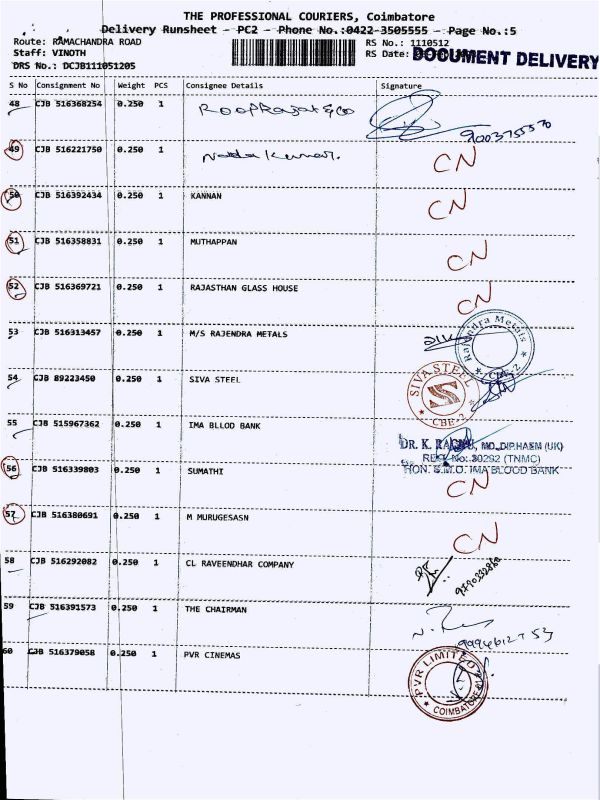 THE PROFESSIONAL COURIERS, Coimbatore
Delivery Runsheet - PC2 - Phone No.:0422-3505555 - Page No.:5
Route: RAMACHANDRA ROAD RS No.: 1110512
Staff: VINOTH RS Date: DOCUMENT DELIVERY
DRS No.: DCJB111051205
S No Consignment No Weight PCS Consignee Details Signature
48 CJB 516368254 0.250 1 RoopRajat & Co
49 CJB 516221750 0.250 1 Kumar. CN
50 CJB 516392434 0.250 1 KANNAN CN
51 CJB 516358831 0.250 1 MUTHAPPAN CN
52 CJB 516369721 0.250 1 RAJASTHAN GLASS HOUSE CN
53 CJB 516313457 0.250 1 M/S RAJENDRA METALS Rajendra Metals CBE-2
54 CJB 89223450 0.250 1 SIVA STEEL SIVA STEEL CBE-2
55 CJB 515967362 0.250 1 IMA BLLOD BANK
DR. K. MD., DIP.HASM (UK)
REG. No: 30292 (TNMC)
HON. B.M.O. IMA BLOOD BANK
56 CJB 516339803 0.250 1 SUMATHI CN
57 CJB 516380691 0.250 1 M MURUGESASN CN
58 CJB 516292082 0.250 1 CL RAVEENDHAR COMPANY
59 CJB 516391573 0.250 1 THE CHAIRMAN
60 CJB 516379058 0.250 1 PVR CINEMAS PVR LIMITED COIMBATORE